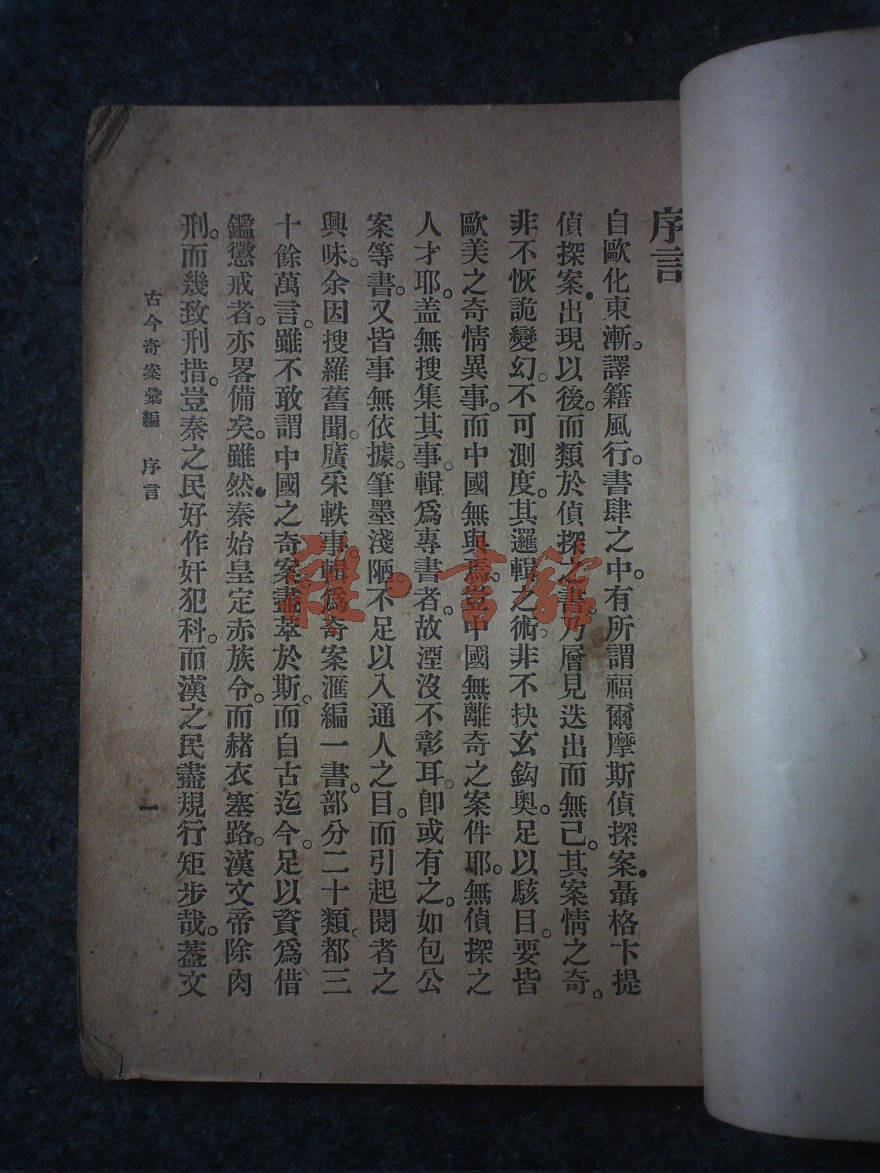 序言
自歐化東漸。譯籍風行。書肆之中。有所謂福爾摩斯偵探案。聶格卞提
偵探案。出現以後。而類於偵探之書。乃層見迭出而無已。其案情之奇。
非不恢詭變幻。不可測度。其邏輯之術。非不抉玄鈎奧。足以駭目。要皆
歐美之奇情異事。而中國無與焉。豈中國無離奇之案件耶。無偵探之
人才耶。蓋無搜集其事。輯爲專書者。故湮沒不彰耳。卽或有之。如包公
案等書。又皆事無依據。筆墨淺陋。不足以入通人之目。而引起閱者之
興味。余因搜羅舊聞。廣采軼事。輯爲奇案滙編一書。部分二十類。都三
十餘萬言。雖不敢謂中國之奇案。盡萃於斯。而自古迄今。足以資爲借
鑑懲戒者。亦畧備矣。雖然。秦始皇定赤族令。而赭衣塞路。漢文帝除肉
刑。而幾致刑措。豈秦之民好作奸犯科。而漢之民盡規行矩步哉。蓋文
古今奇案彙編 序言
一
雜·書館